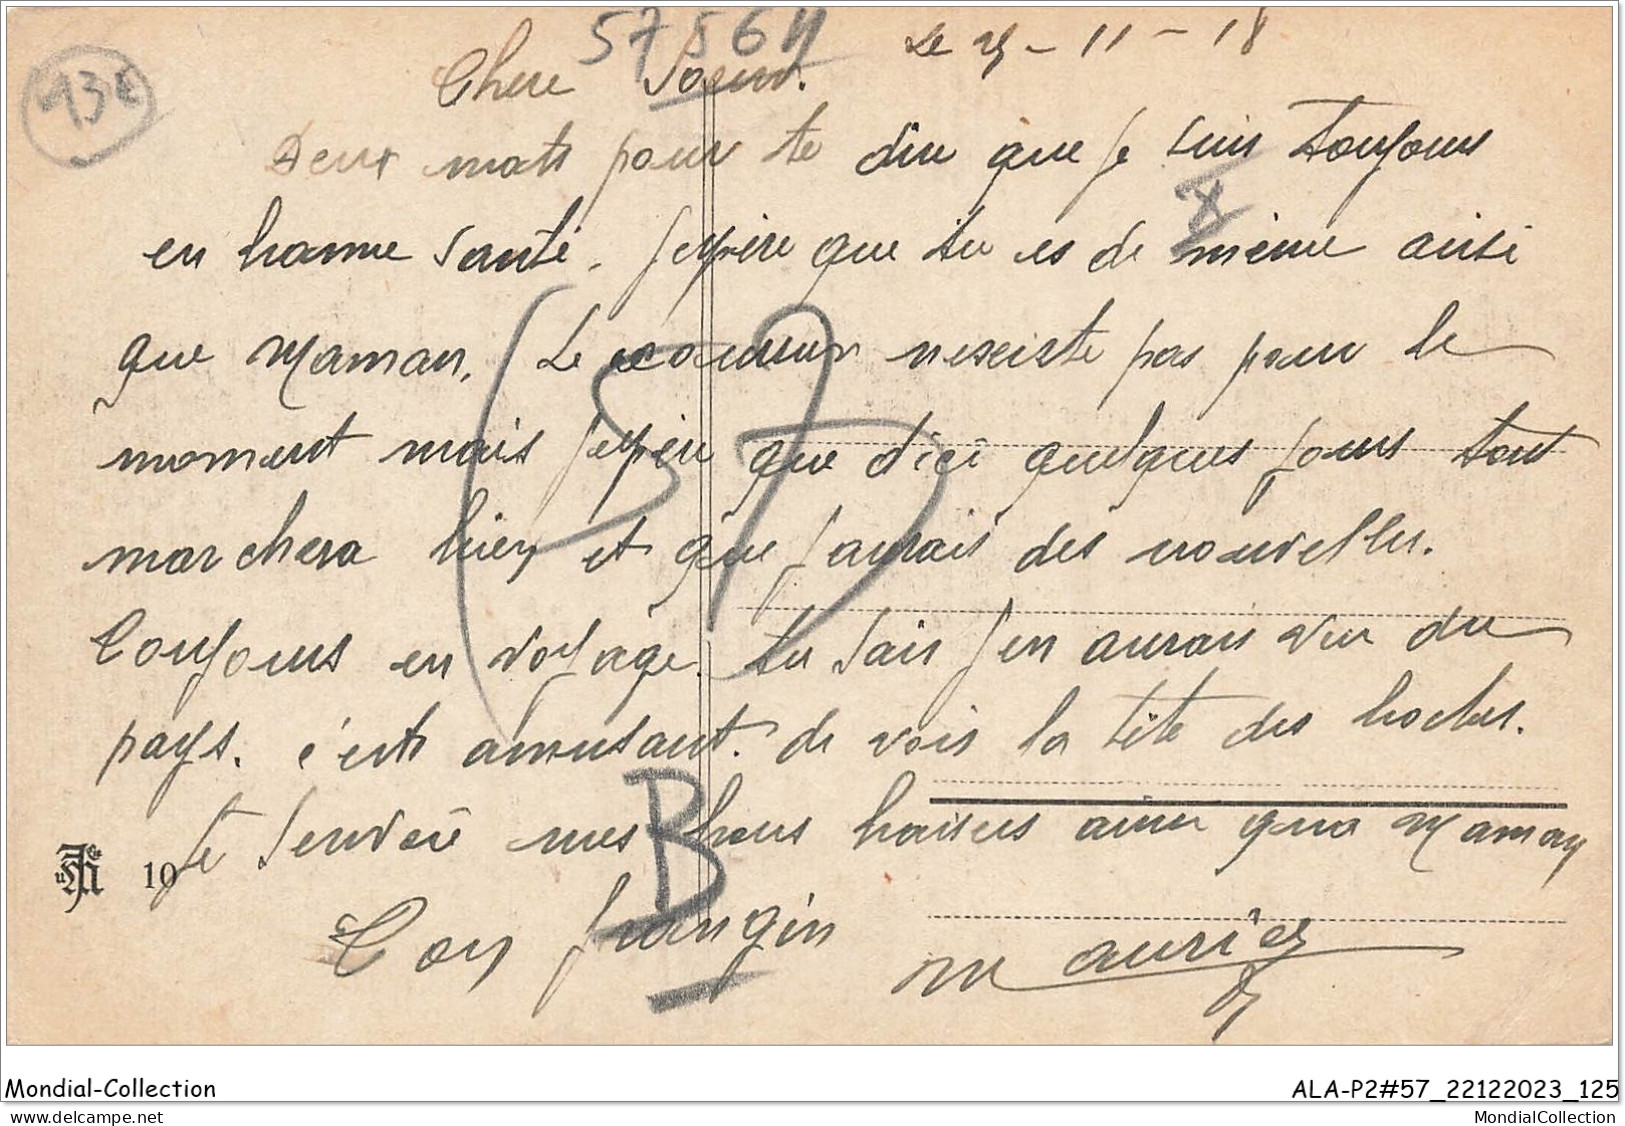 57564
Le 25-11-18
13E
Chere Soeur.
Deux mots pour te dire que je suis toujours
X
en bonne santé. J'espère que tu es de même ainsi
que Maman. Le courrier n'esciste pas pour le
moment mais j'espère que d'ici quelques jours tout
marchera bien et que j'aurais des nouvelles.
Toujours en voyage. tu sais j'en aurais vu du
pays. c'est amusant. de vois la tête des boches.
Je t'envoie mes bons baisers ainsi que Maman
10
Ton frangin
(57)
B
Mondial-Collection
ALA-P2#57_22122023_125
Mondial-Collection.com
MondialCollection